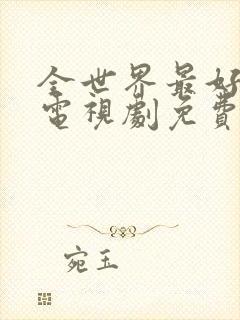 全世界最好
電視劇免費
宛玉